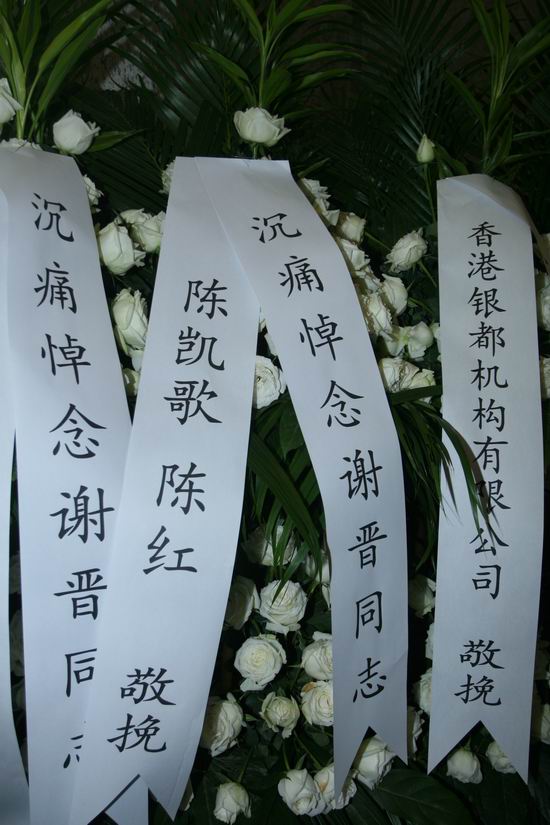 沉痛悼念谢晋同志
陈凯歌 陈红 敬挽
沉痛悼念谢晋同志
香港银都机构有限公司 敬挽